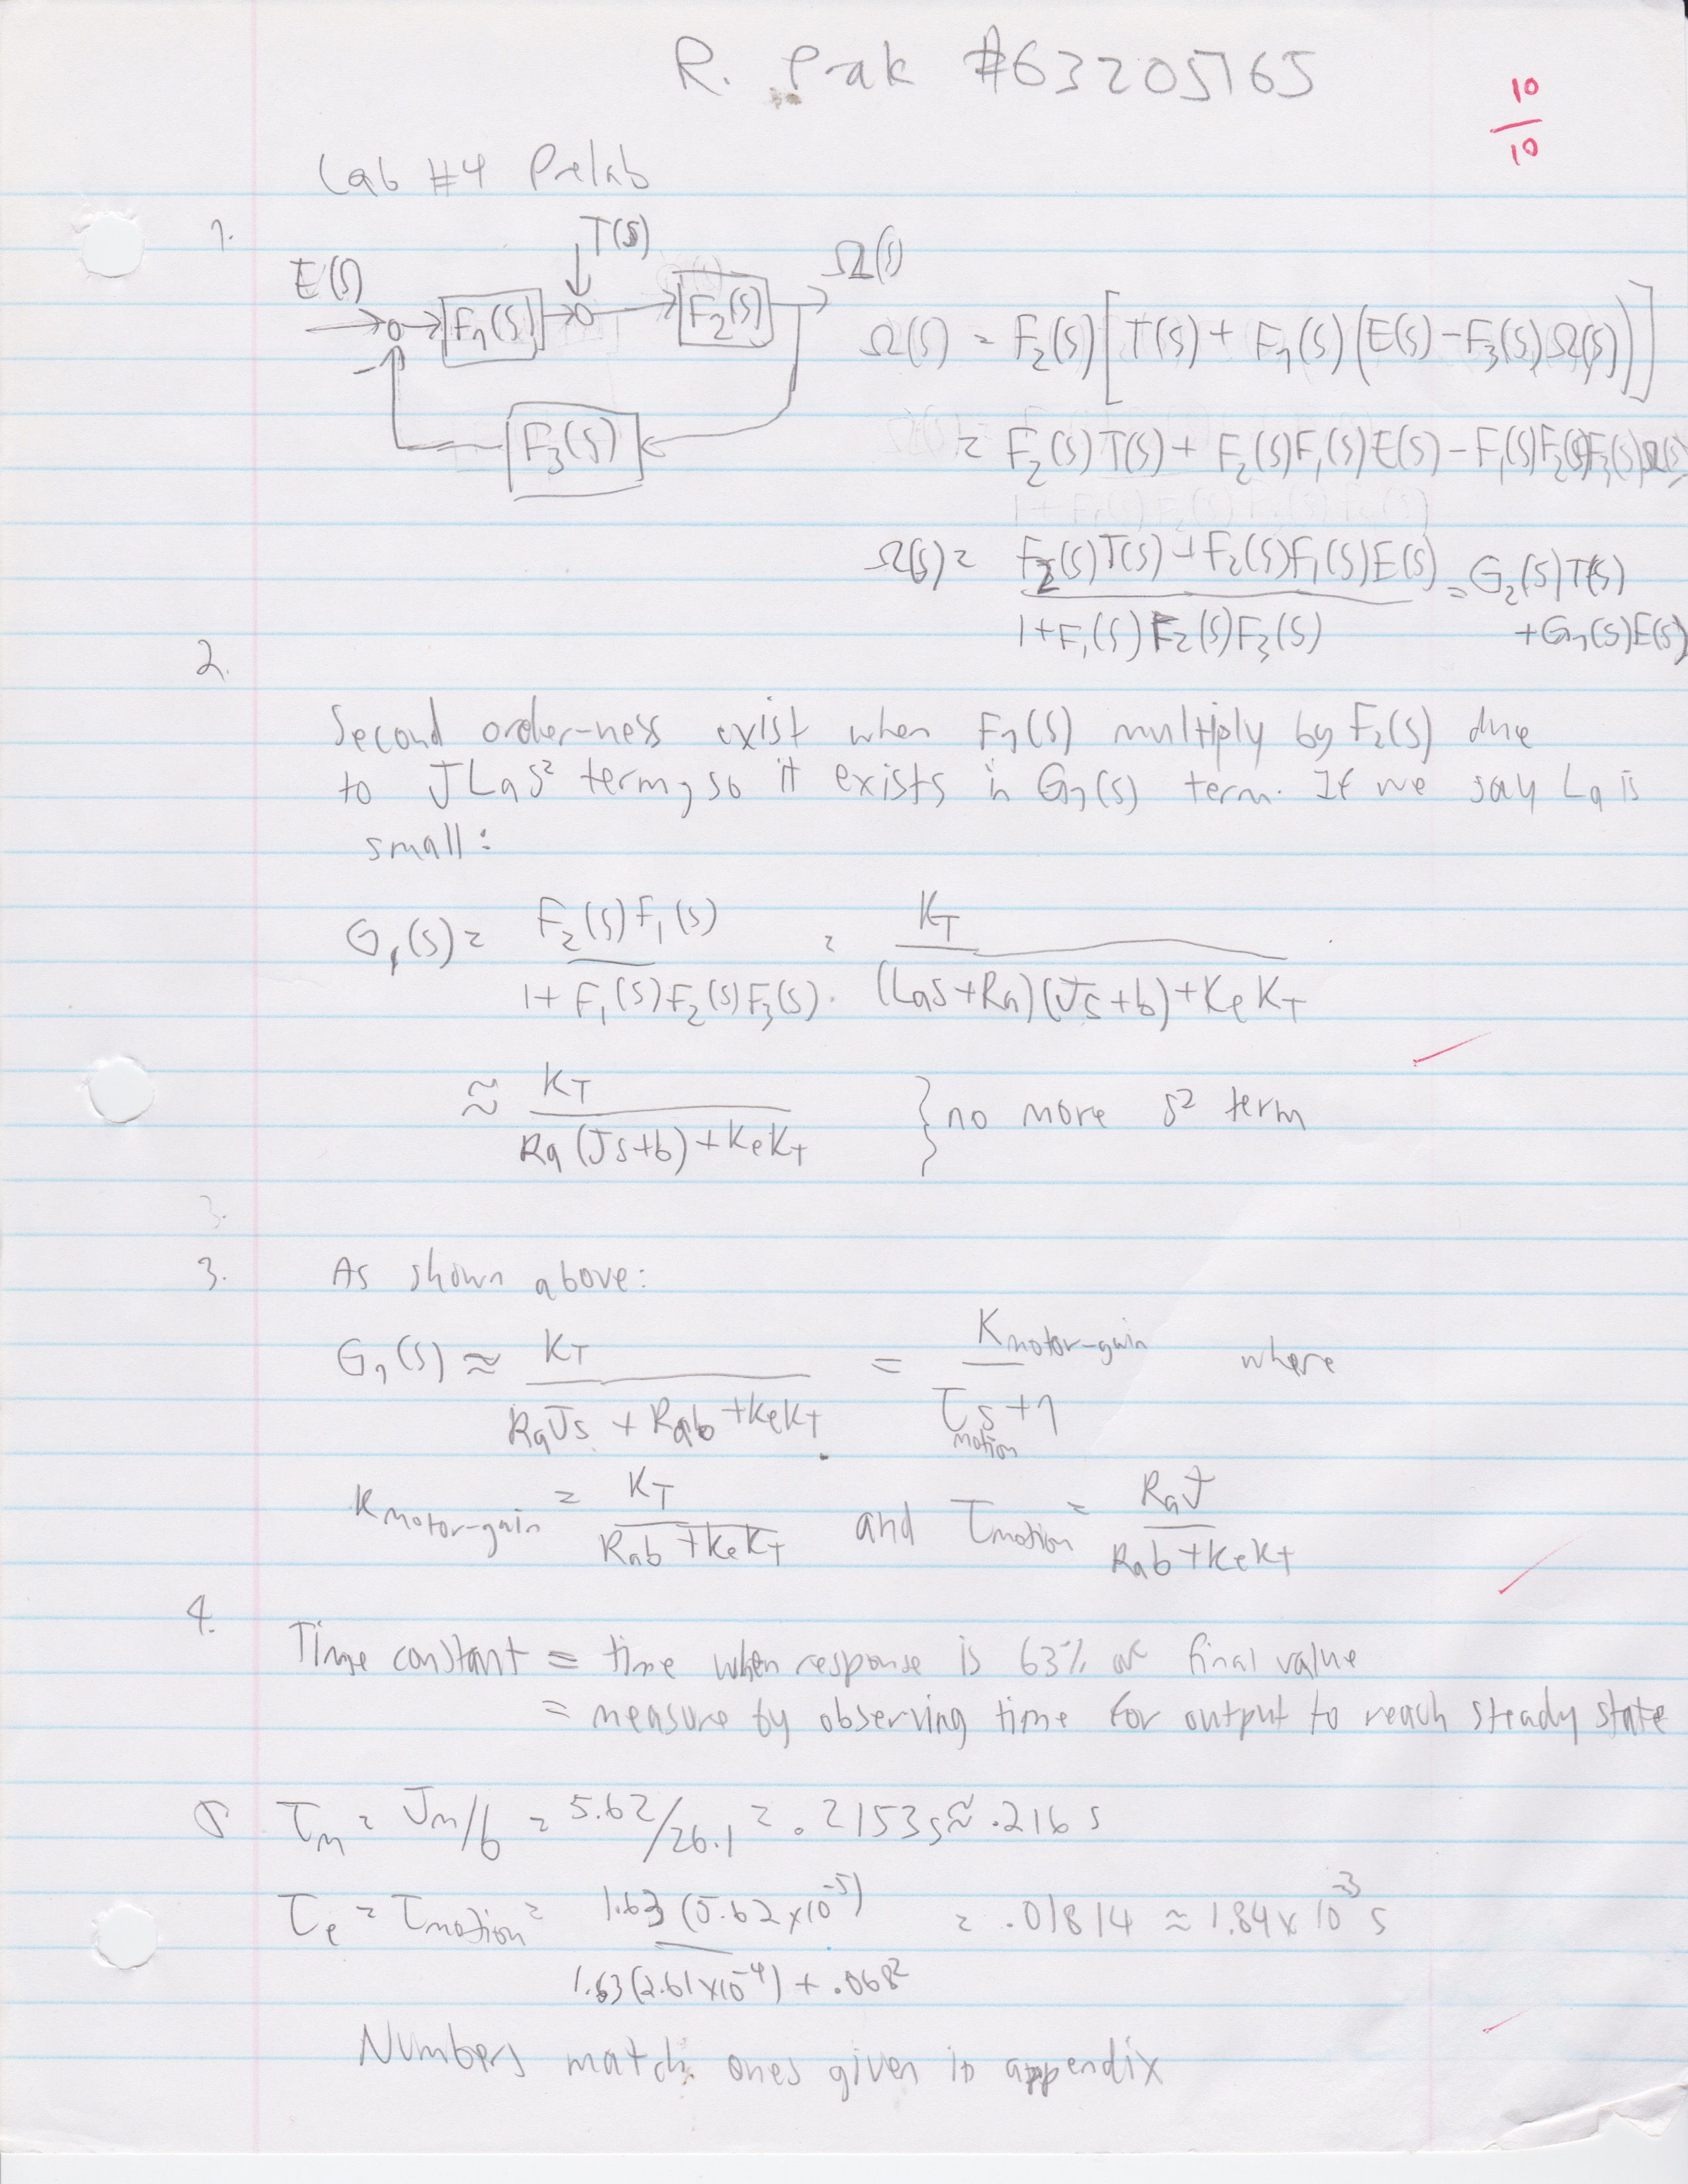 R. Pak #63205765
10
10
Lab #4 Prelab
1.
T(s)
E(s)
Ω(s)
F₁(s)
F₂(s)
-
F₃(s)
Ω(s) = F₂(s)[T(s) + F₁(s)(E(s) - F₃(s)Ω(s))]
= F₂(s)T(s) + F₂(s)F₁(s)E(s) - F₁(s)F₂(s)F₃(s)Ω(s)
Ω(s) = F₂(s)T(s) + F₂(s)F₁(s)E(s) / 1+F₁(s)F₂(s)F₃(s) = G₂(s)T(s)
+G₁(s)E(s)
2.
Second order-ness exist when F₁(s) multiply by F₂(s) due
to JLas² term, so it exists in G₁(s) term. If we say La is
small:
G₁(s) = F₂(s)F₁(s) / 1+F₁(s)F₂(s)F₃(s) = KT / (Las+Ra)(Js+b)+KeKT
≈ KT / Ra(Js+b)+KeKT } no more s² term
3.
3. As shown above:
G₁(s) ≈ KT / RaJs + Rab + KeKT = Kmotor-gain / τmotion s+1 where
Kmotor-gain = KT / Rab+KeKT and τmotion = RaJ / Rab+KeKT
4.
Time constant = time when response is 63% of final value
= measure by observing time for output to reach steady state
5 τm = Jm/b = 5.62/26.1 = .2153s ≈ .216 s
τe = τmotion = 1.63(5.62x10⁻⁵) / 1.63(2.61x10⁻⁴) + .068² = .01814 ≈ 1.84x10⁻³ s
Numbers match ones given in appendix